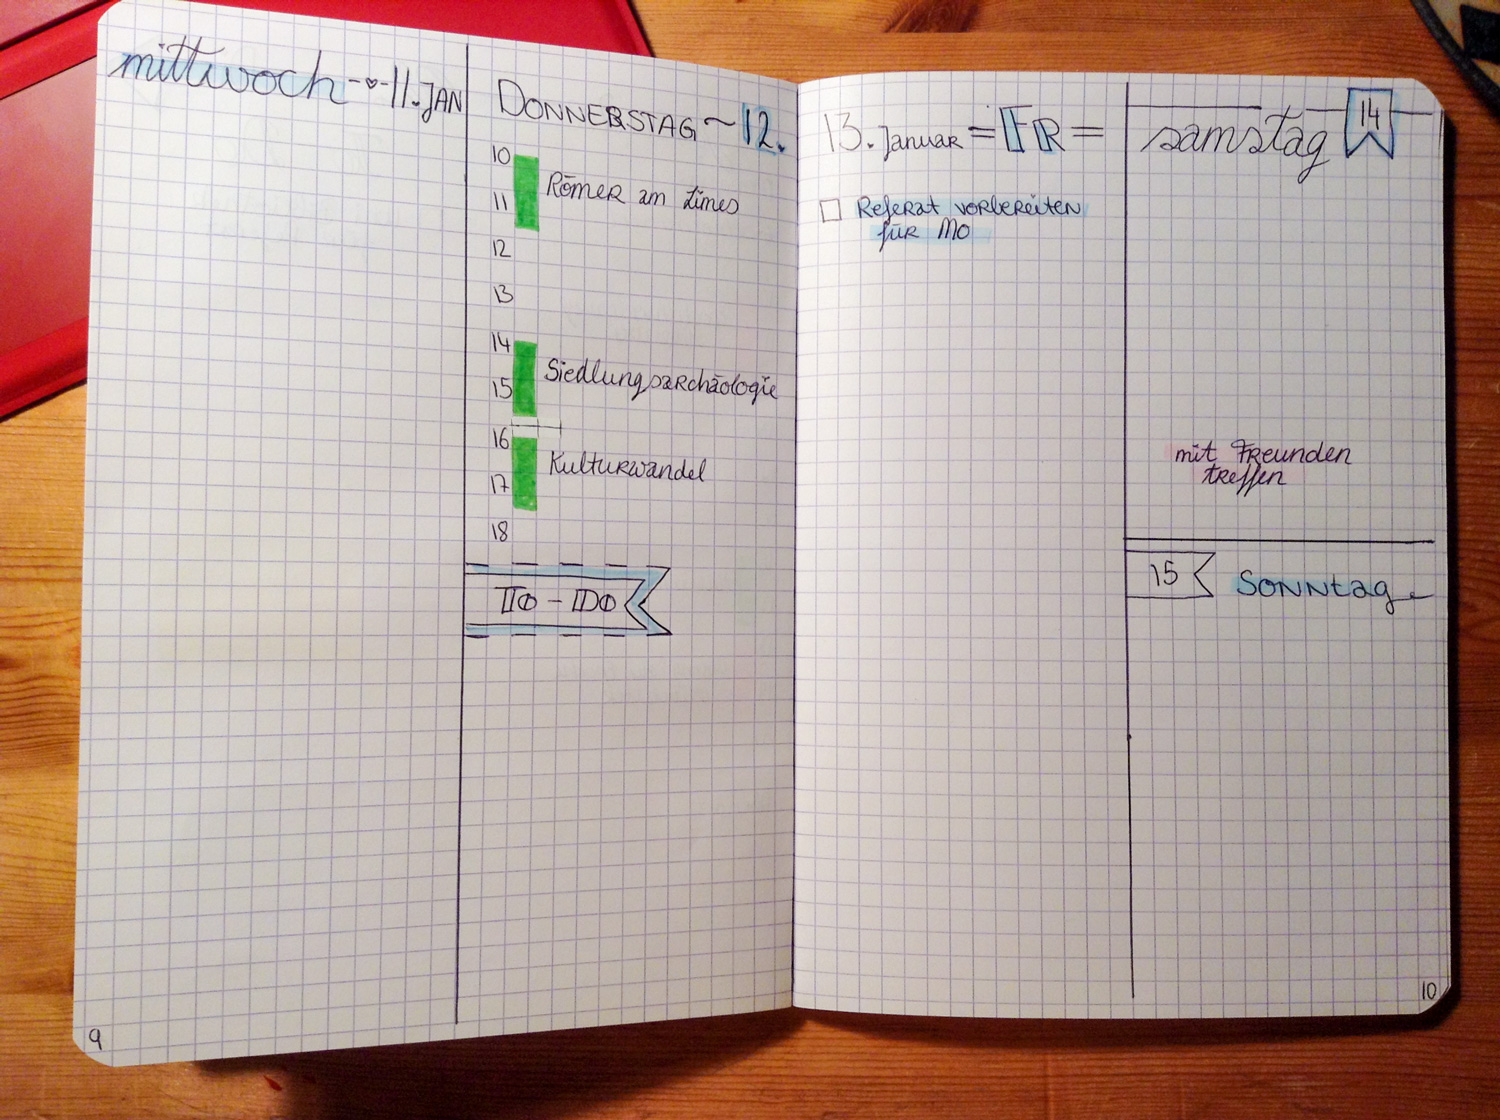 mittwoch -♥- 11. JAN
DONNERSTAG ~ 12.
10
Römer am Limes
11
12
13
14
Siedlungsarchäologie
15
16
Kulturwandel
17
18
TO - DO
9
13. Januar = FR =
Referat vorbereiten
für MO
samstag 14
mit Freunden
treffen
15 Sonntag
10